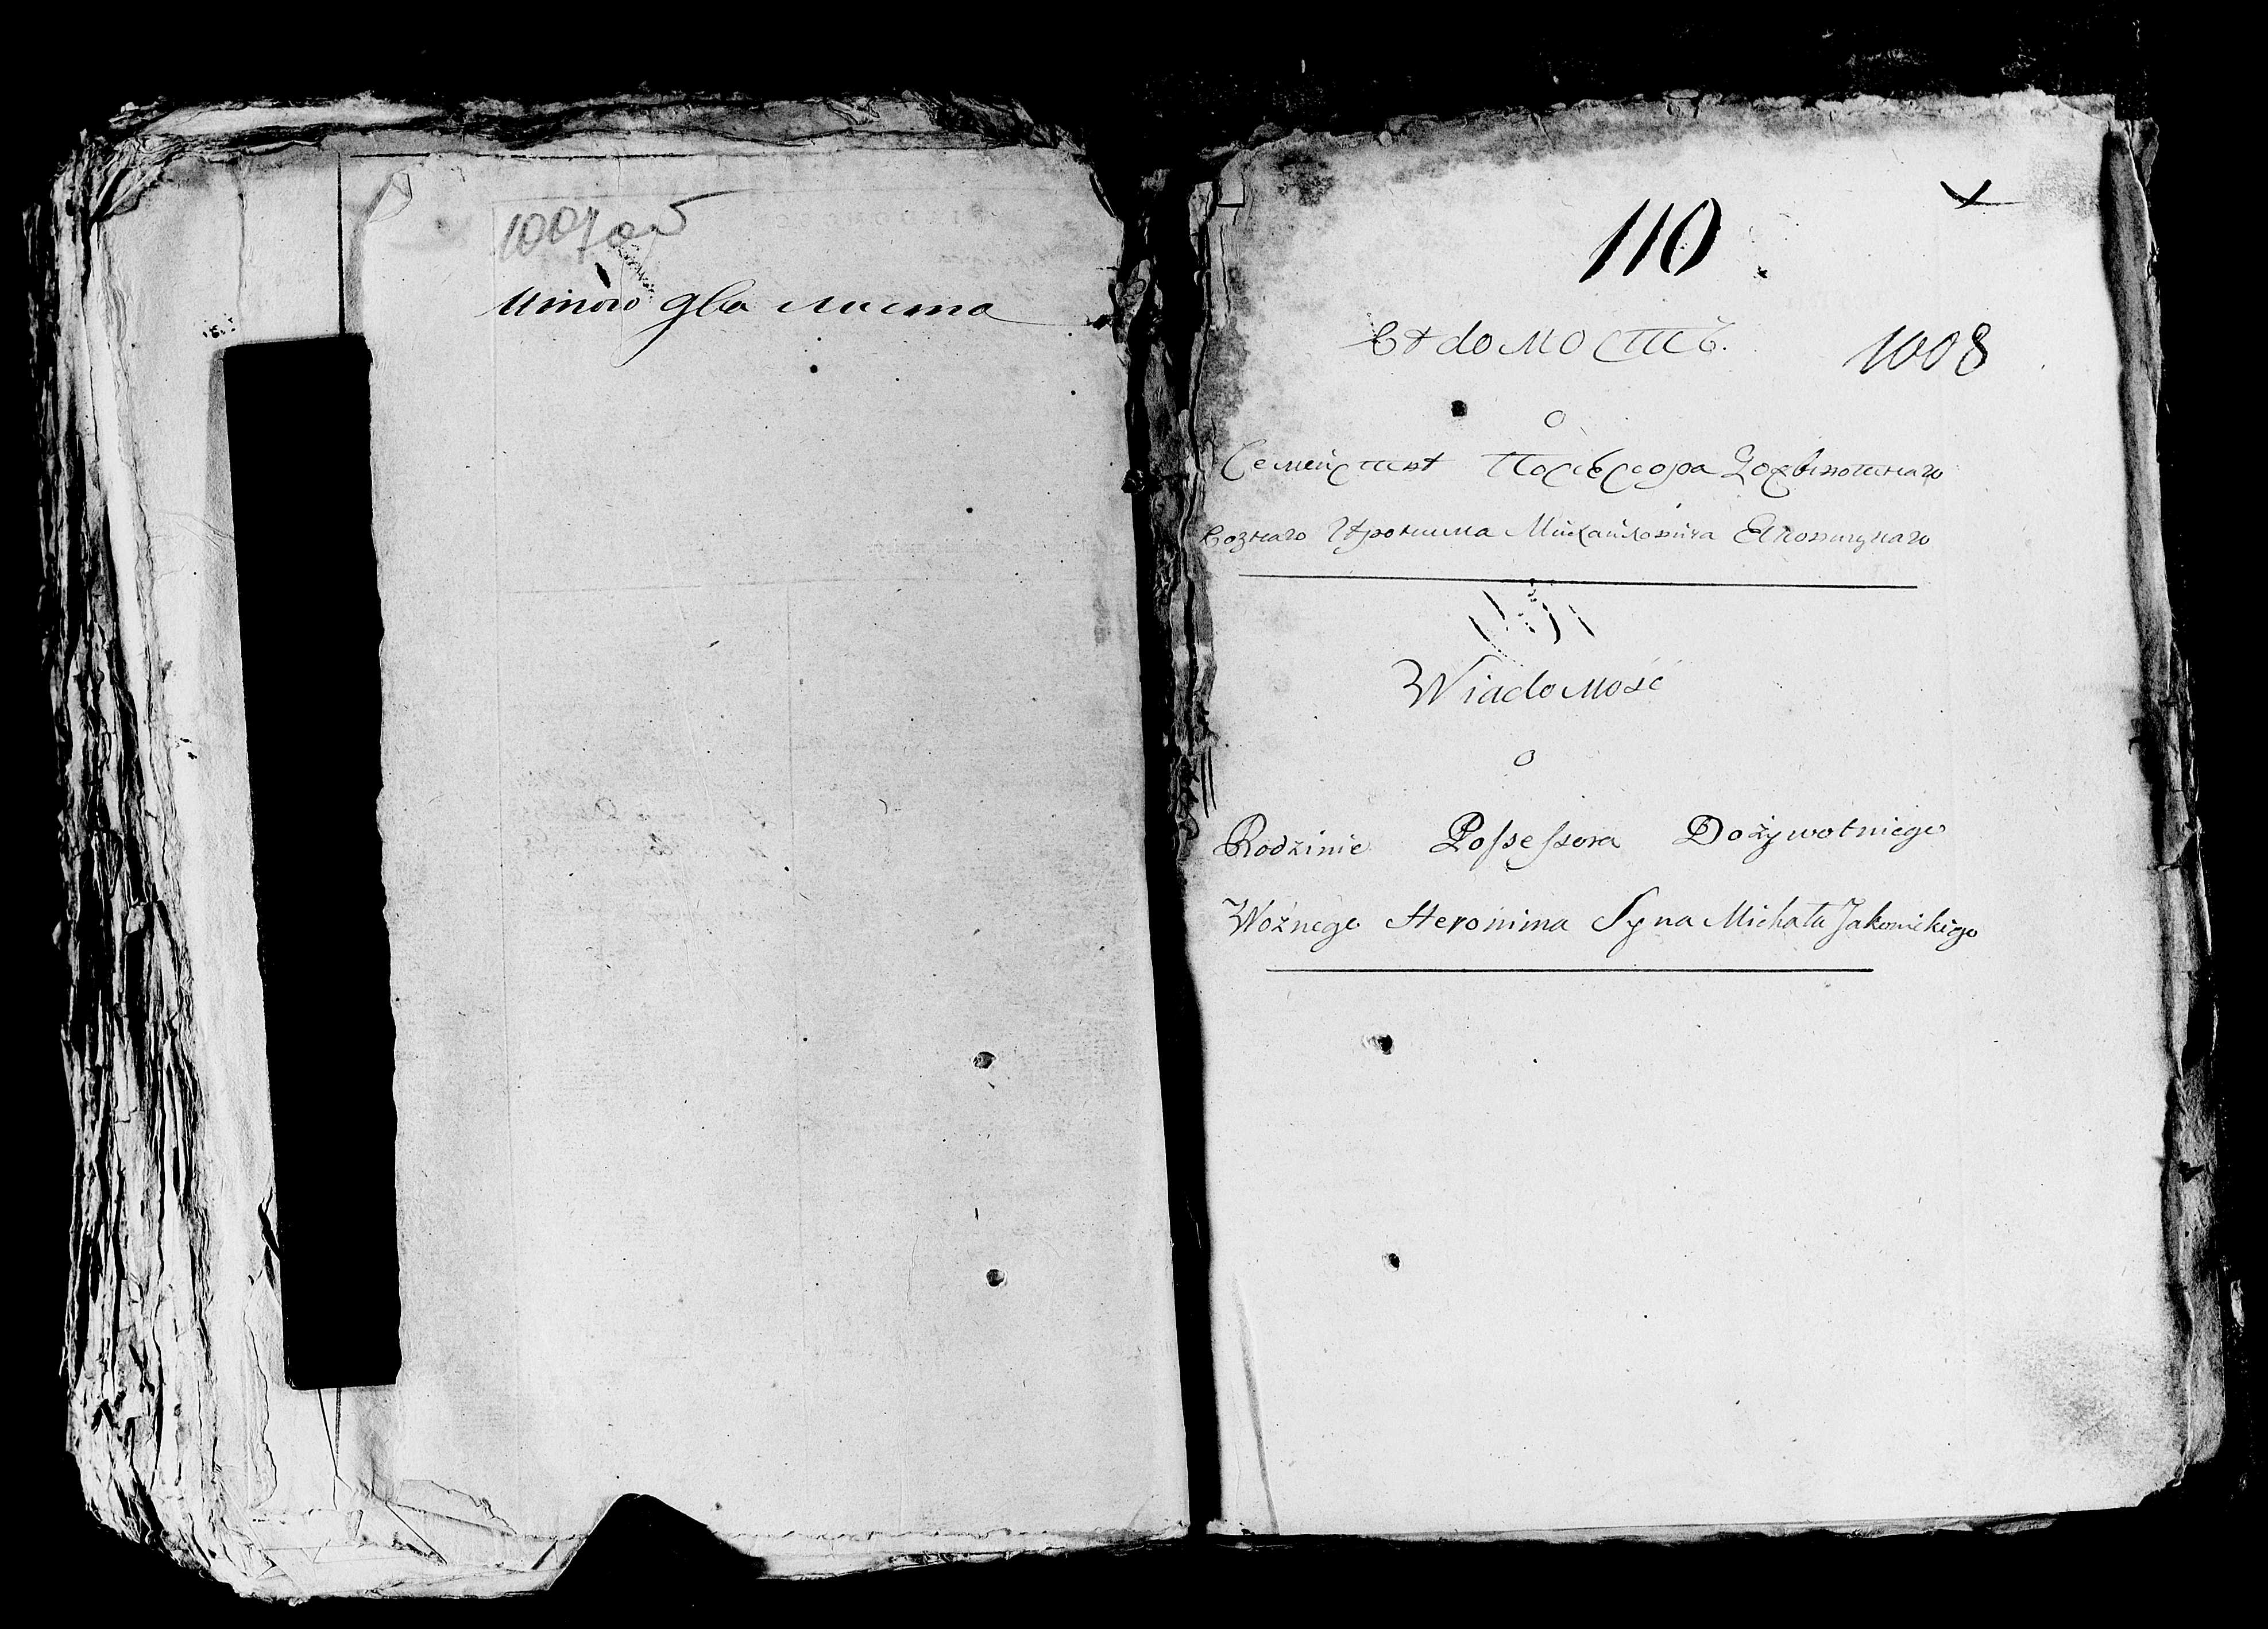 1007 об
Итого два листа
110
Вѣдомость
1008
о
Семействѣ Посесора Дожывотнаго
Вознаго Иронима Михайловича
Wiadomość
o
Rodzinie Possessora Dożywotniego
Woźnego Heronima Syna Michała Jakowickiego